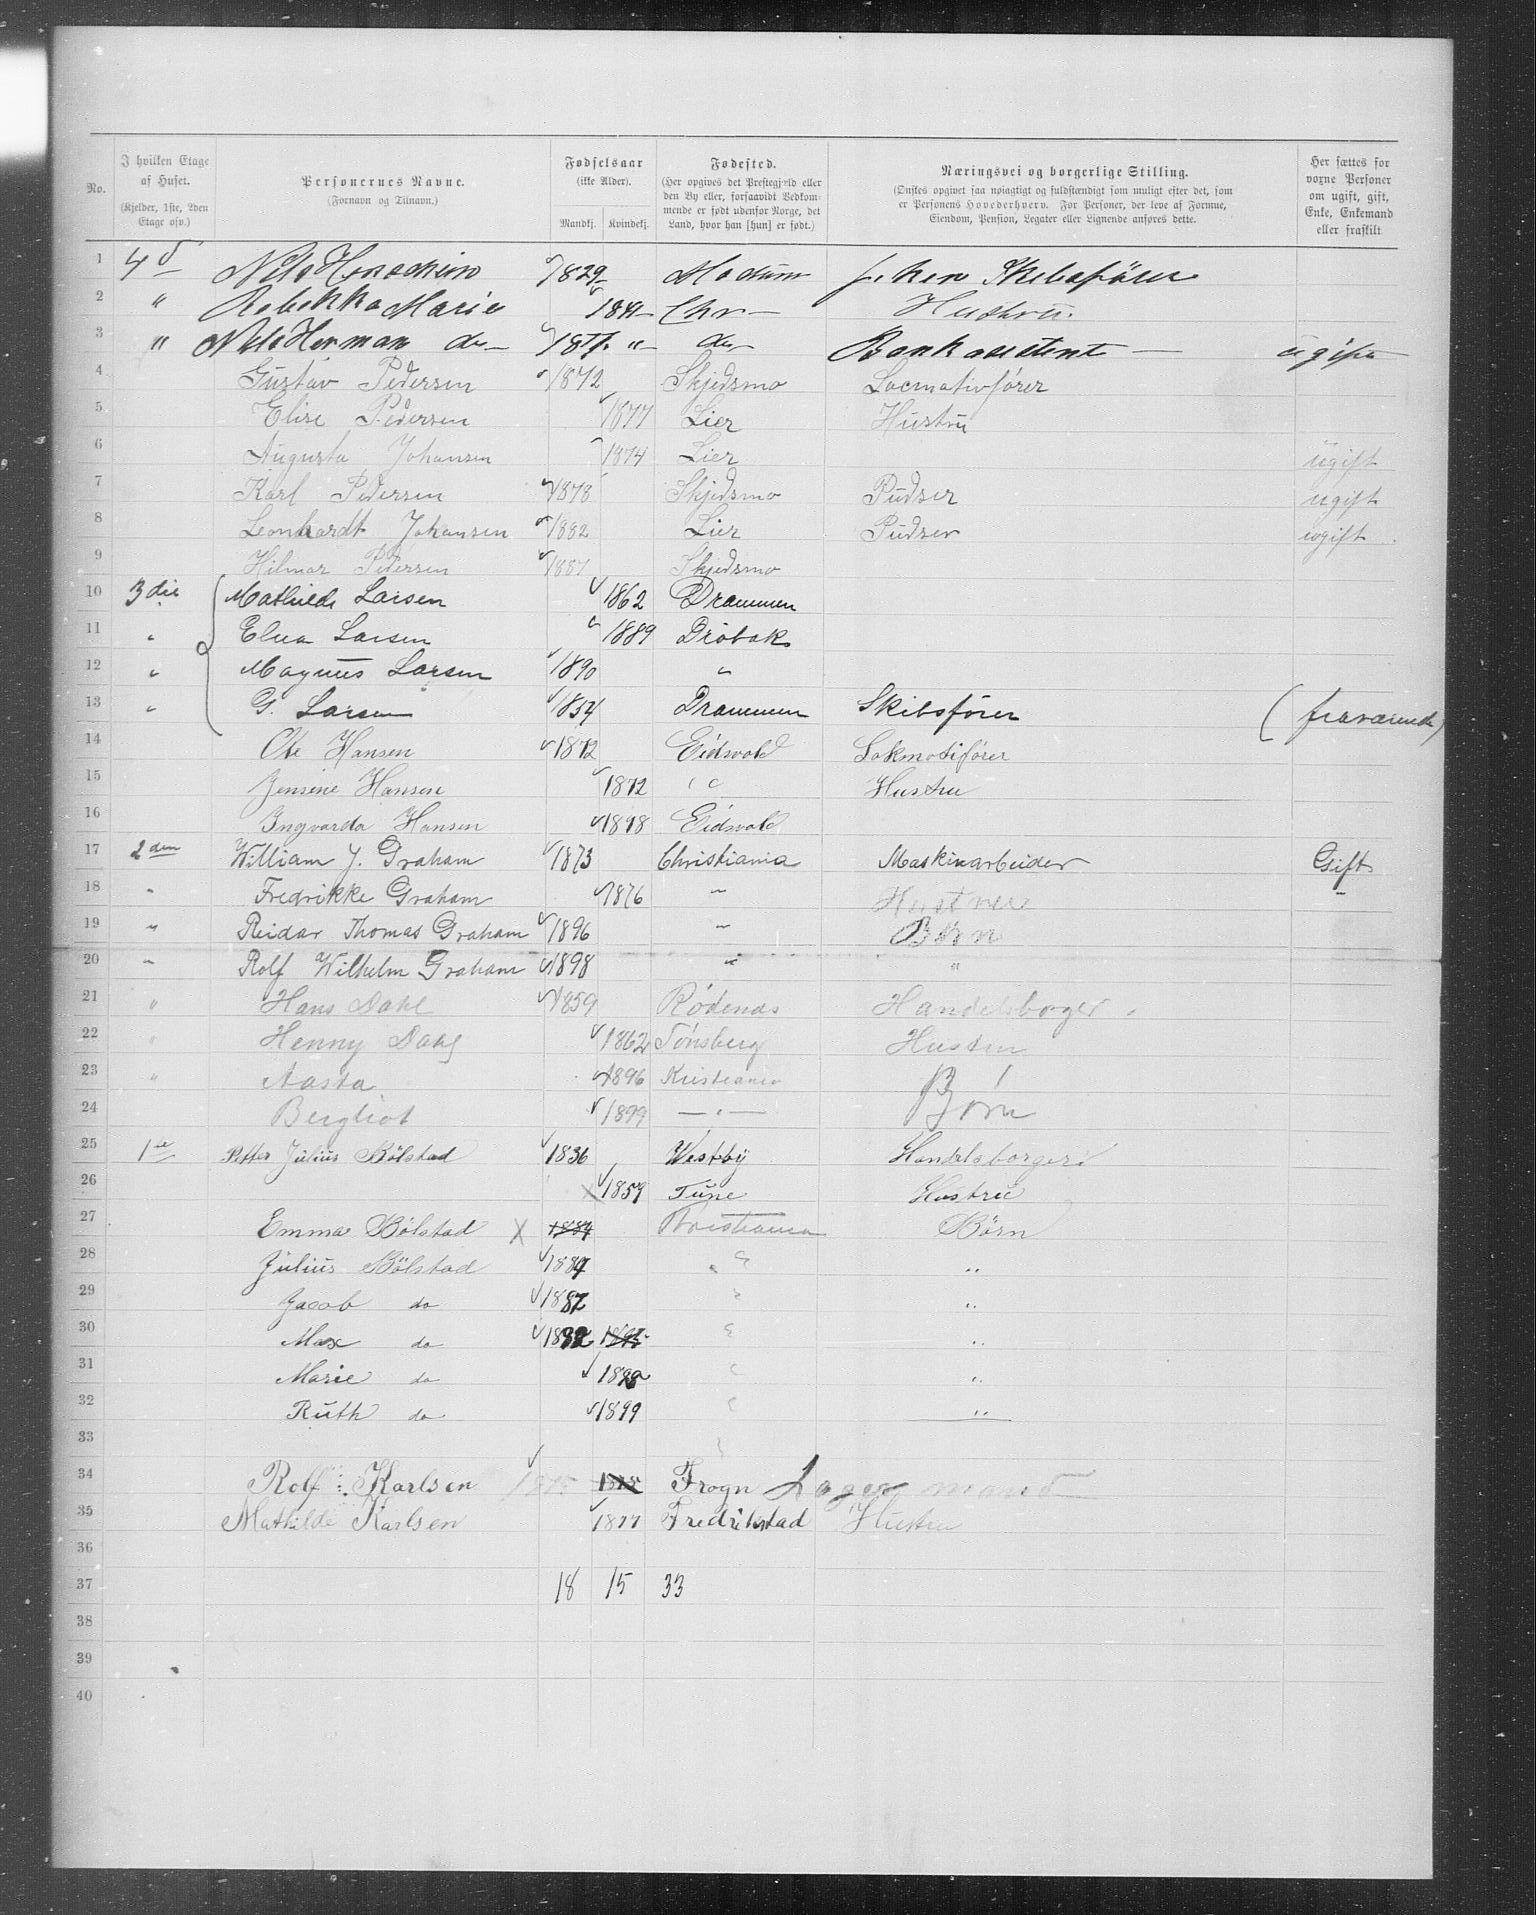 No.
I hvilken Etage af Huset.
(Kjelder, 1ste, 2den Etage osv.)
Personernes Navne.
(Fornavn og Tilnavn.)
Fødselsaar
(ikke Alder).
Mandkj. Kvindekj.
Fødested.
(Her opgives det Prestegjeld eller den By eller, forsaavidt Vedkommende er født udenfor Norge, det Land, hvor han [hun] er født.)
Næringsvei og borgerlige Stilling.
(Ønskes opgivet saa nøiagtigt og fuldstændigt som muligt efter det, som er Personens Hovederhverv. For Personer, der leve af Formue, Eiendom, Pension, Legater eller Lignende anføres dette.
Her sættes for voxne Personer om ugift, gift, Enke, Enkemand eller fraskilt
1 4d Nils 1829 Modum Skibsfører
2 " Rebekka Marie Chr – Hustru.
3 " Nils Herman do – do – Bankassistent – ugift
4 Gustav Pedersen 1872 Skjedsmo Locmativfører
5 Elise Pedersen 1877 Lier Hustru
6 Augusta Johansen 1874 Lier ugift
7 Karl Pedersen 1878 Skjedsmo Pudser ugift
8 Leonhardt Johansen 1882 Lier Pudser ugift
9 Hilmar Pedersen 1887 Skjedsmo
10 3die Mathilde Larsen 1862 Drammen
11 " Elna Larsen 1889 Drøbak
12 " Magnus Larsen 1890 "
13 " G. Larsen 1854 Drammen Skibsfører (fraværende)
14 Ole Hansen 1872 Eidsvold Lokmotifører
15 Jensine Hansen 1872 " Hustru
16 Ingvarda Hansen 1898 Eidsvold
17 2den William J. Graham 1873 Christiania Maskinarbeider Gift
18 " Fredrikke Graham 1876 " Hustrue "
19 " Reidar Thomas Graham 1896 " Børn
20 " Rolf Wilhelm Graham 1898 " "
21 " Hans Dahl 1859 Rødenæs Handelsborger.
22 " Henny Dahl 1862 Tønsberg Hustru
23 " Aasta 1896 Kristiania Børn
24 Bergliot 1899 — " —
25 1ste Petter Julius Bölstad 1836 Westby Handelsborger
26 X 1859 Tune Hustru
27 Emma Bölstad X 1884 Kristiania Børn
28 Julius Bölstad 1884 " "
29 Jacob do 1887 " "
30 Max do 1892 " "
31 Marie do 1898 " "
32 Ruth do 1899 " "
33
34 Rolf Karlsen 1875 1875 Frogn Lagermand
35 Mathilde Karlsen 1877 Fredrikstad Hustru
36
37 18 15 33
38
39
40